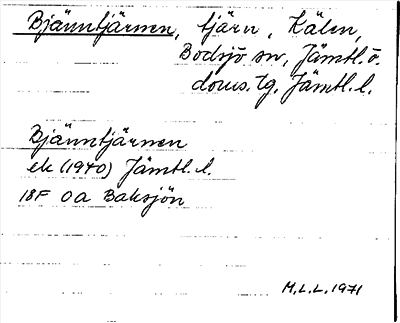 Bjänntjärnen, tjärn, Kälen,
Bodsjö sn, Jämtl. ö.
doms. tg, Jämtl. l.
Bjänntjärnen
ek (1940) Jämtl. l.
18F 0a Baksjön
M.L.L. 1971